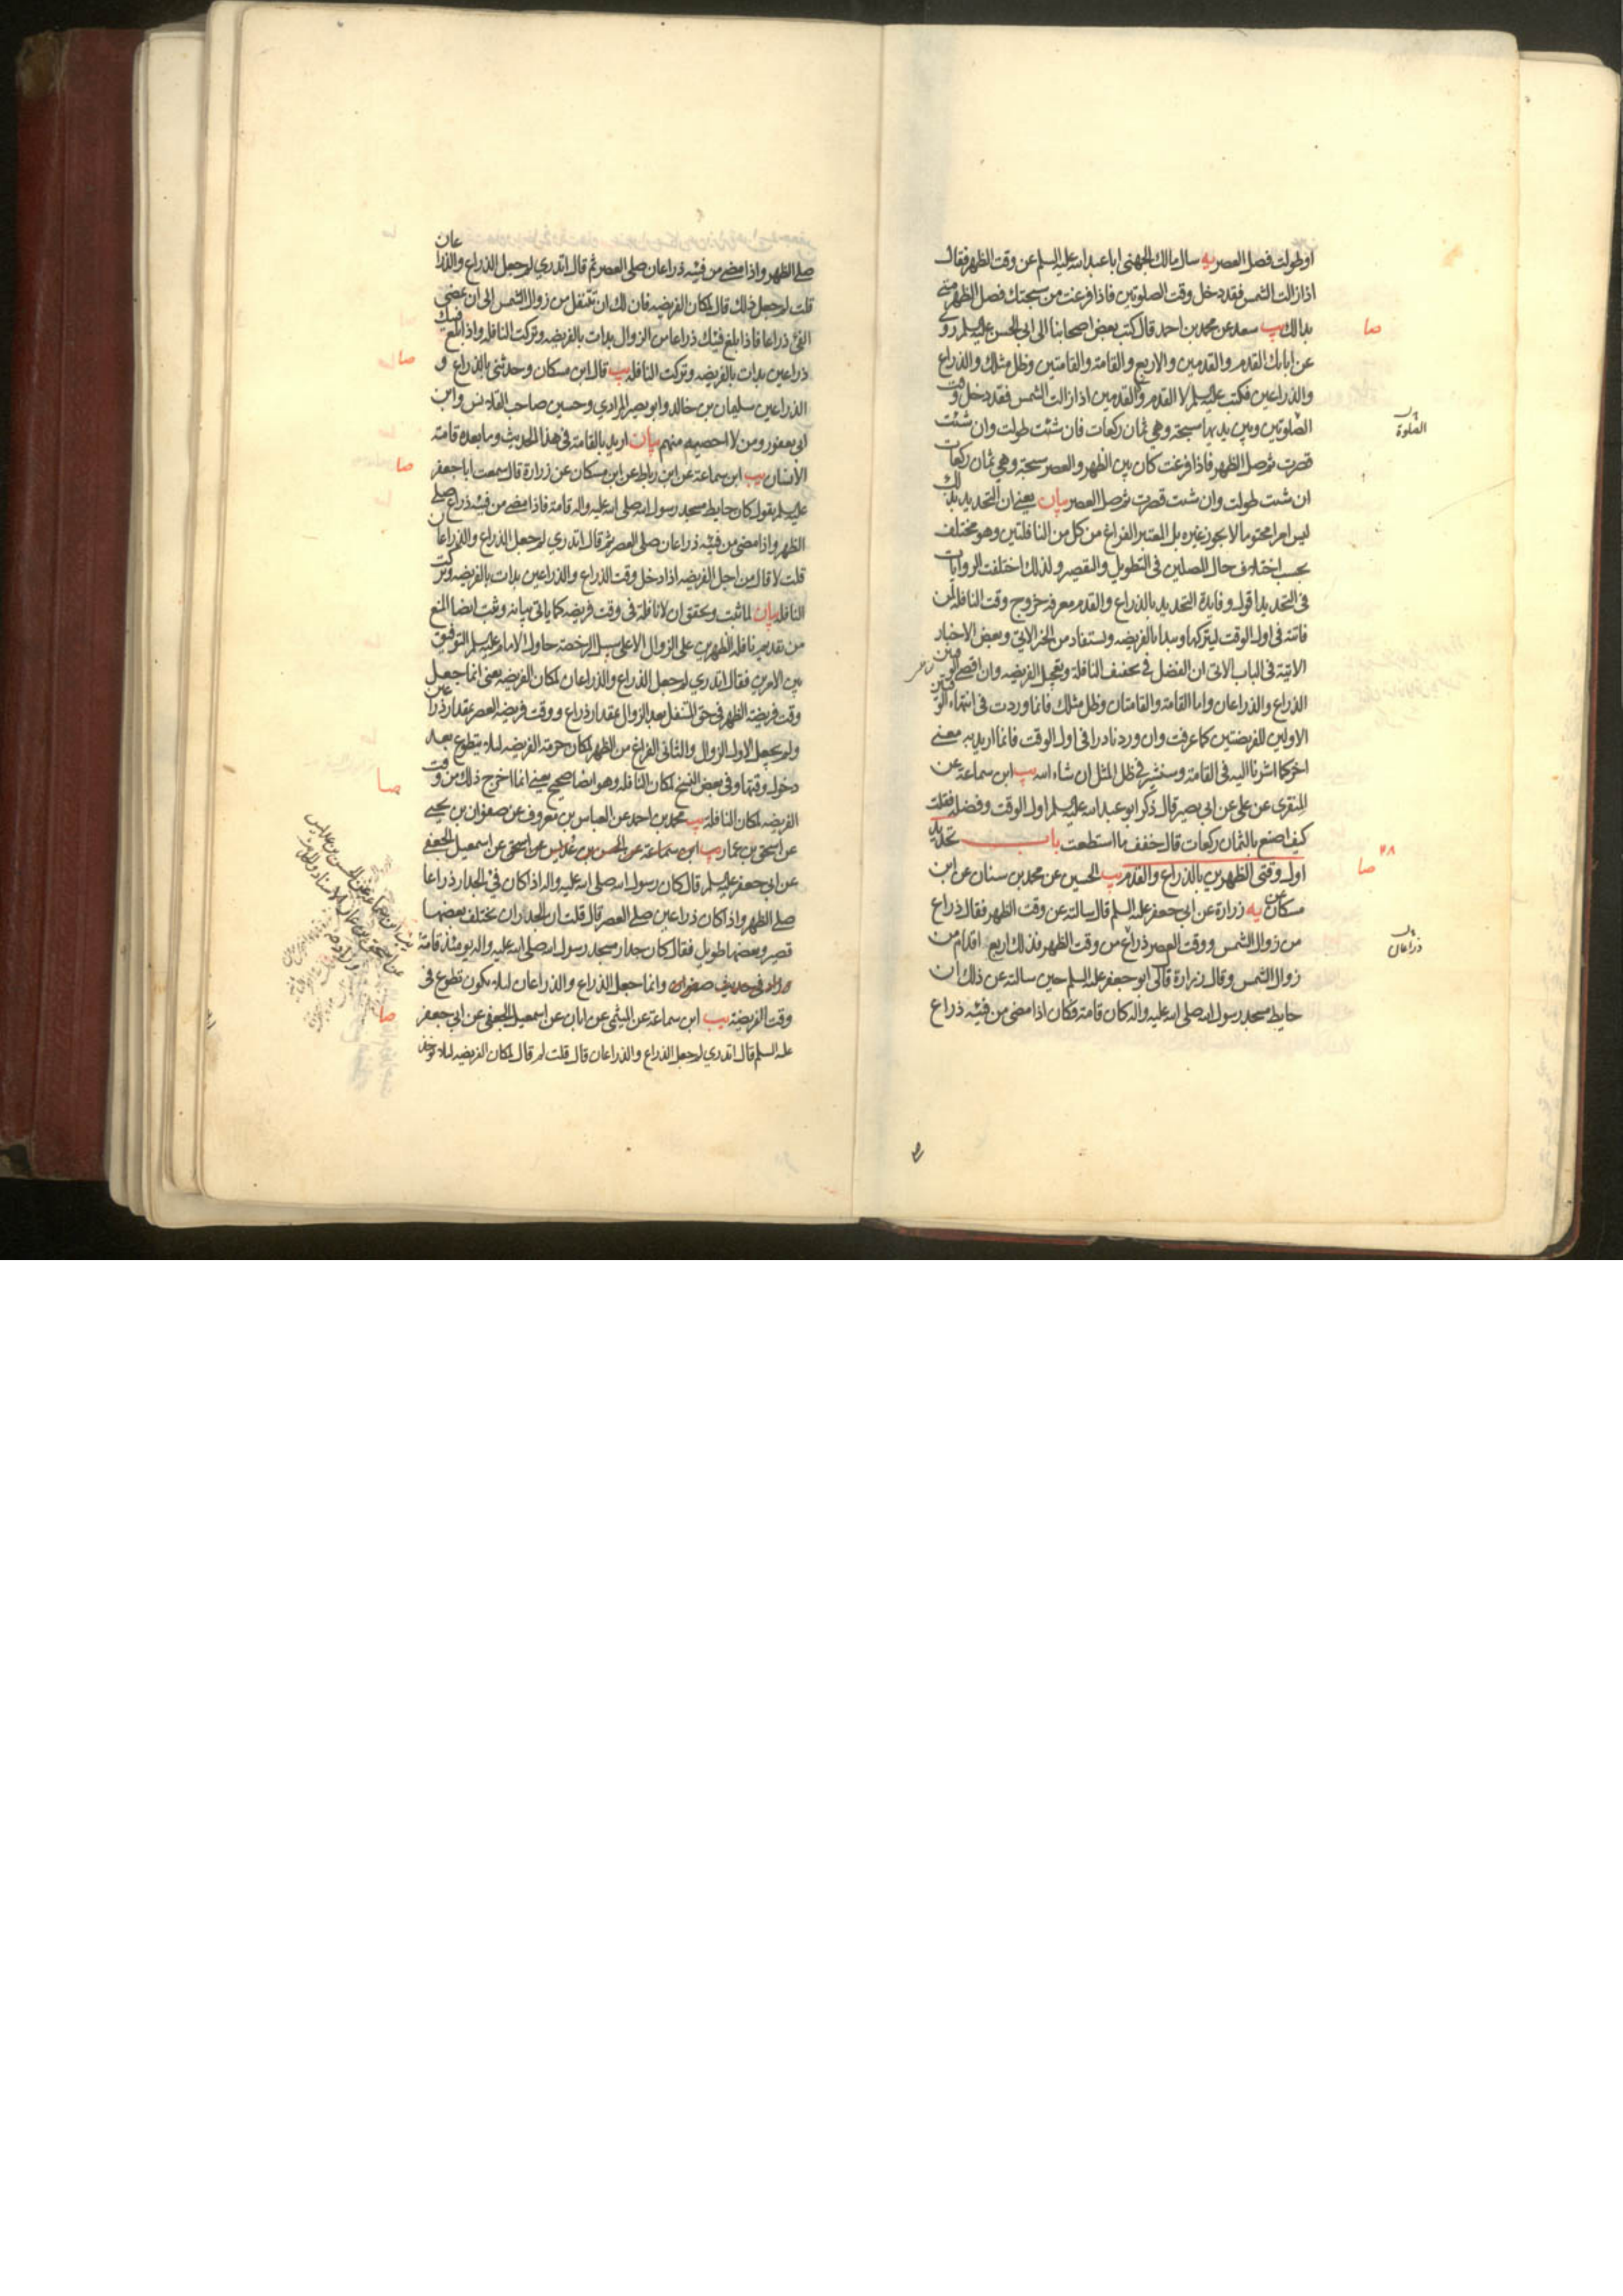 او طولت فصل العصر يه سال مالك الجهني ابا عبد الله عليه السلم عن وقت الظهر فقال
اذا زالت الشمس فقد دخل وقت الصلوتين فاذا فرغت من سبحتك فصل الظهر متى
بدا لك يب سعد عن محمد بن احمد قال كتب بعض اصحابنا الى ابي الحسن عليه السلم روى
عن ابائك القدم والقدمين والاربع والقامة والقامتين وظل مثلك والذراع
والذراعين فكتب عليه السلم لا القدم ولا القدمين اذا زالت الشمس فقد دخل وقت
الصلوتين وبين يديها سبحة وهي ثمان ركعات فان شئت طولت وان شئت
قصرت ثم صل الظهر فاذا فرغت كان بين الظهر والعصر سبحة وهي ثمان ركعات
ان شئت طولت وان شئت قصرت ثم صل العصر بيان يعني ان التحديد بذلك
ليس امرا محتوما لا يجوز غيره بل المعتبر الفراغ من كل من النافلتين وهو مختلف
بحسب اختلاف حال المصلين في التطويل والتقصير ولذلك اختلفت الروايات
في التحديد اقول وفايدة التحديد بالذراع والقدم معرفة خروج وقت النافلة لمن
فاتته في اول الوقت ليتركها ويبدا بالفريضه ويستفاد من الخبر الاتي وبعض الاخبار
الاتية في الباب الاتي ان الفضل في تخفيف النافلة وتعجيل الفريضه وان اقصى الوقتين
الذراع والذراعان واما القامة والقامتان وظل مثلك فانما وردت في انتهاء الوقتين
الاولين للفريضتين كما عرفت وان ورد نادرا في اول الوقت فانما اريد به معنى
اخر كما اشرنا اليه في القامة وسنشير في ظل المثل ان شاء الله يب ابن سماعة عن
المنقري عن علي عن ابي بصير قال ذكر ابو عبد الله عليه السلم اول الوقت وفضله فقلت
كيف اصنع بالثمان ركعات قال خفف ما استطعت باب تحديد
اول وقتي الظهرين بالذراع والقدم يب الحسين عن محمد بن سنان عن ابن
مسكان عن يه زرارة عن ابي جعفر عليه السلم قال سالته عن وقت الظهر فقال ذراع
من زوال الشمس ووقت العصر ذراع من وقت الظهر فذلك اربع اقدام من
زوال الشمس وقال زرارة قال لي ابو جعفر عليه السلم حين سالته عن ذلك ان
حايط مسجد رسول الله صلى الله عليه واله كان قامة فكان اذا مضى من فيئه ذراع
صا
الصلوة
٢٨
صا
ذراعان
صلى الظهر واذا مضى من فيئه ذراعان صلى العصر ثم قال اتدري لم جعل الذراع والذراعان
قلت لم جعل ذلك قال لمكان الفريضه فان لك ان تتنفل من زوال الشمس الى ان يمضي
الفئ ذراعا فاذا بلغ فيئك ذراعا من الزوال بدات بالفريضه وتركت النافلة واذا بلغ فيئك
ذراعين بدات بالفريضه وتركت النافلة يب قال ابن مسكان وحدثني بالذراع و
الذراعين سليمان بن خالد وابو بصير المرادي وحسين صاحب القلانس وابن
ابي يعفور ومن لا احصيه منهم بيان اريد بالقامة في هذا الحديث وما بعده قامة
الانسان يب ابن سماعة عن ابن رباط عن ابن مسكان عن زرارة قال سمعت ابا جعفر
عليه السلم يقول كان حايط مسجد رسول الله صلى الله عليه واله قامة فاذا مضى من فيئه ذراع صلى
الظهر واذا مضى من فيئه ذراعان صلى العصر ثم قال اتدري لم جعل الذراع والذراعان
قلت لا قال من اجل الفريضه اذا دخل وقت الذراع والذراعين بدات بالفريضه وتركت
النافلة بيان لما ثبت وتحقق ان لا نافلة في وقت فريضه كما ياتي بيانه وثبت ايضا المنع
من تقديم نافلة الظهرين على الزوال الا على سبيل الرخصة حاول الامام عليه السلم التوفيق
بين الامرين فقال اتدري لم جعل الذراع والذراعان لمكان الفريضه يعني انما جعل
وقت فريضة الظهر في حق المتنفل بعد الزوال بمقدار ذراع ووقت فريضة العصر بمقدار ذراعين
ولم يجعل الاول الزوال والثاني الفراغ من الظهر لمكان حرمة الفريضه لئلا يتطوع بعد
دخول وقتها وفي بعض النسخ لمكان النافلة وهو ايضا صحيح يعني انما اخرج ذلك من وقت
الفريضه لمكان النافلة يب محمد بن احمد عن العباس بن معروف عن صفوان بن يحيى
عن اسحق بن عمار يب ابن سماعة عن الحسن بن عديس عن اسحق عن اسمعيل الجعفي
عن ابي جعفر عليه السلم قال كان رسول الله صلى الله عليه واله اذا كان في الجدار ذراعا
صلى الظهر واذا كان ذراعين صلى العصر قال قلت ان الجدران يختلف بعضها
قصير وبعضها طويل فقال كان جدار مسجد رسول الله صلى الله عليه واله يومئذ قامة
وزاد في حديث صفوان وانما جعل الذراع والذراعان لئلا يكون تطوع في
وقت الفريضة يب ابن سماعة عن الميثمي عن ابان عن اسمعيل الجعفي عن ابي جعفر
عليه السلم قال اتدري لم جعل الذراع والذراعان قال قلت لم قال لمكان الفريضه لئلا يوخذ
صا
صا
صا
صا